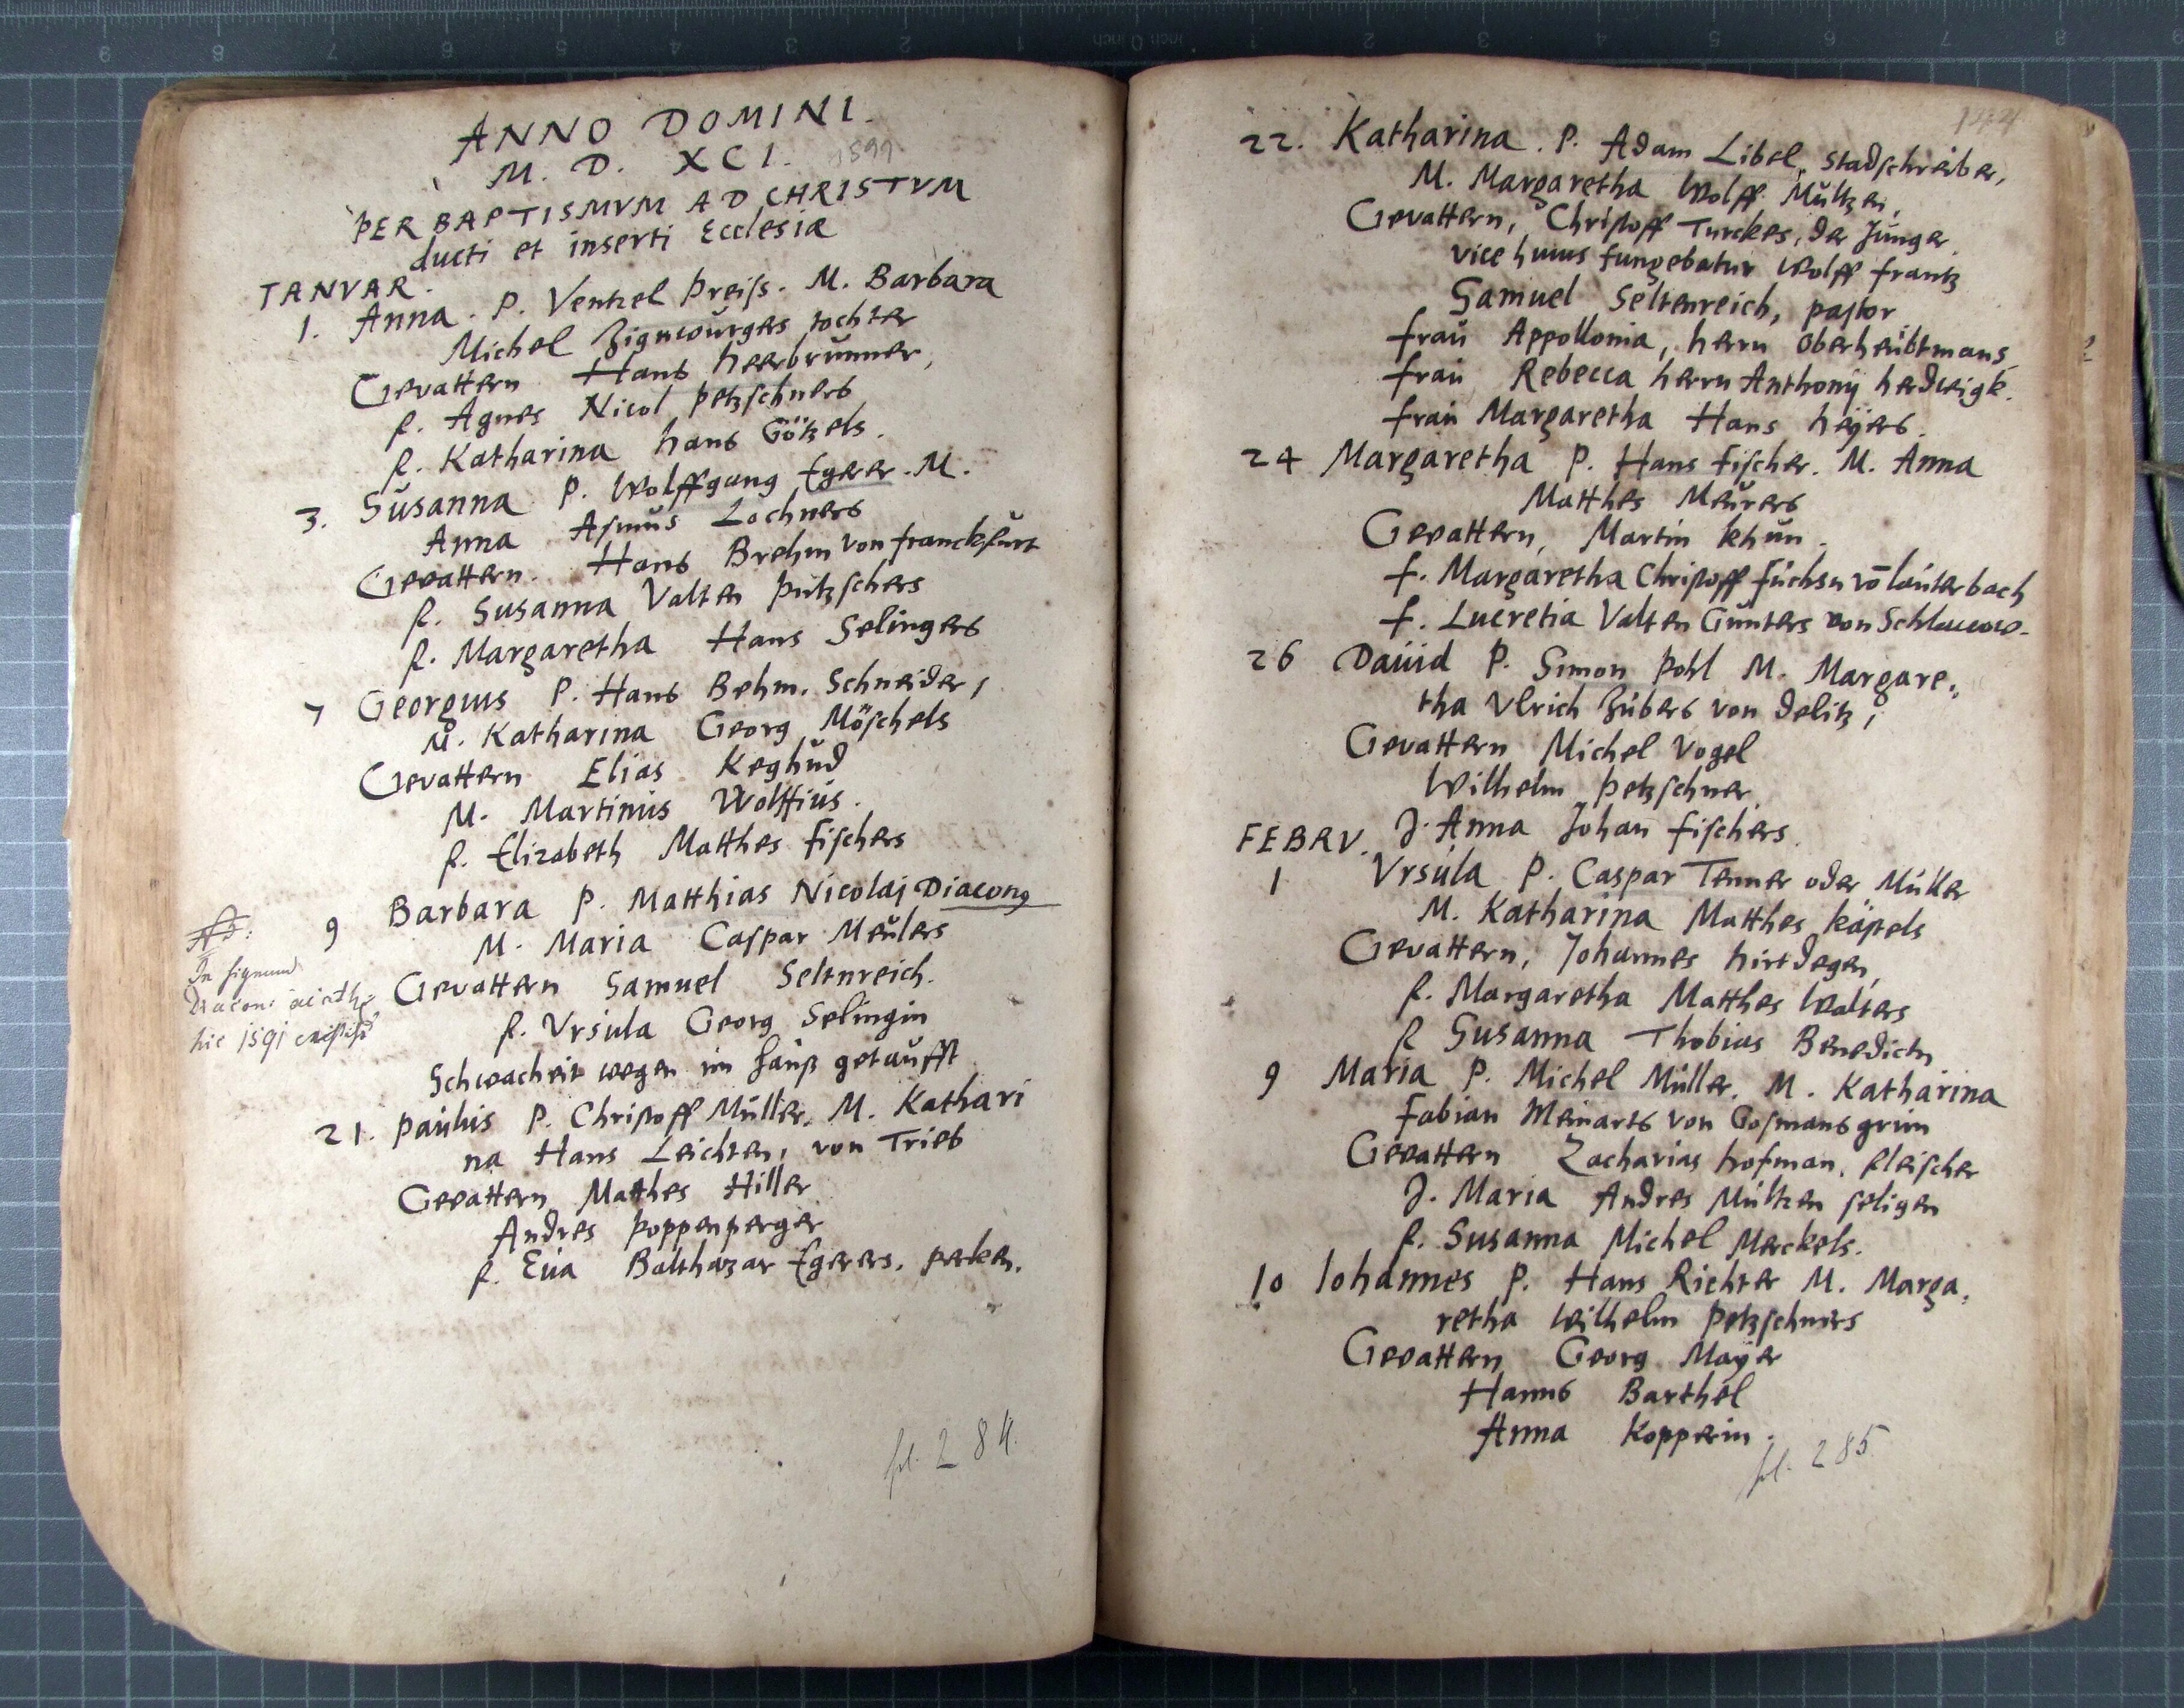 ANNO DOMINI.
M. D. XCI. 1591
PER BAPTISMVM AD CHRISTVM
ducti et inserti Ecclesiæ
IANVAR.
1. Anna. P. Ventzel Preiss. M. Barbara
Michel Zigncourges tochter
Gevattern Hans heerbrunner,
f. Agnes Nicol petzschners
f. Katharina hans Götzels.
3. Susanna P. Wolffgang Egerer. M.
Anna Asmus Lochners
Gevattern. Hans Brehm von franckfurt
f. Susanna Valten Putzschers
f. Margaretha Hans Selingers
7 Georgius P. Hans Behm. Schneider,
M. Katharina Georg Möschels
Gevattern Elias Keghud
M. Martinus Wolffius.
f. Elizabeth Matthes fischers
9 Barbara P. Matthias Nicolai Diaconus
M. Maria Caspar Meulers
Gevattern Samuel Seltnreich.
f. Vrsula Georg Selingin
Schwacheit wegen im hauß getaufft
hic 1591
21. Paulus P. Christoff Müller. M. Kathari
na Hans Leichten, von Trieb
Gevattern Mathes Hiller
Andres Poppenperger
f. Eua Balthazar Egerers. peken.
fol. 284.
22. Katharina. P. Adam Libel, stadschreiber,
M. Margaretha Wolff Mültzen,
Gevattern, Christoff Turckes, der Junger
vice huius fungebatur Wolff frantz
Samuel Seltenreich, pastor
frau Appollonia, herrn Oberheubtmans
frau Rebecca herrn Anthony hedwigk.
frau Margaretha Hans heyers.
24 Margaretha P. Hans fischer. M. Anna
Matthes Meurers
Gevattern, Martin khun.
f. Margaretha Christoff füchsn võ lauterbach
f. Lucretia Valten Günters von
26 Dauid P. Simon Pohl M. Margare,,
tha Vlrich Zübers von delitz,
Gevattern Michel Vogel
Wilhelm Petzschner.
J. Anna Johan fischers.
FEBRV.
1 Vrsula P. Caspar Tenner oder Müller
M. Katharina Matthes käpels
Gevattern, Johannes hirtdegen,
f. Margaretha Matthes Walters
f Susanna Thobias Benedictn
9 Maria P. Michel Müller. M. Katharina
Fabian Meinarts von Gosmansgrün
Gevattern Zacharias hofman, fleischer
J. Maria Andres Mültzen seligen
f. Susanna Michel Merckels.
10 Iohannes P. Hans Richter M. Marga,
retha Wilhelm Petzschners
Gevattern Georg Mayer
Hanns Barthel
Anna Kopperin.
fol. 285